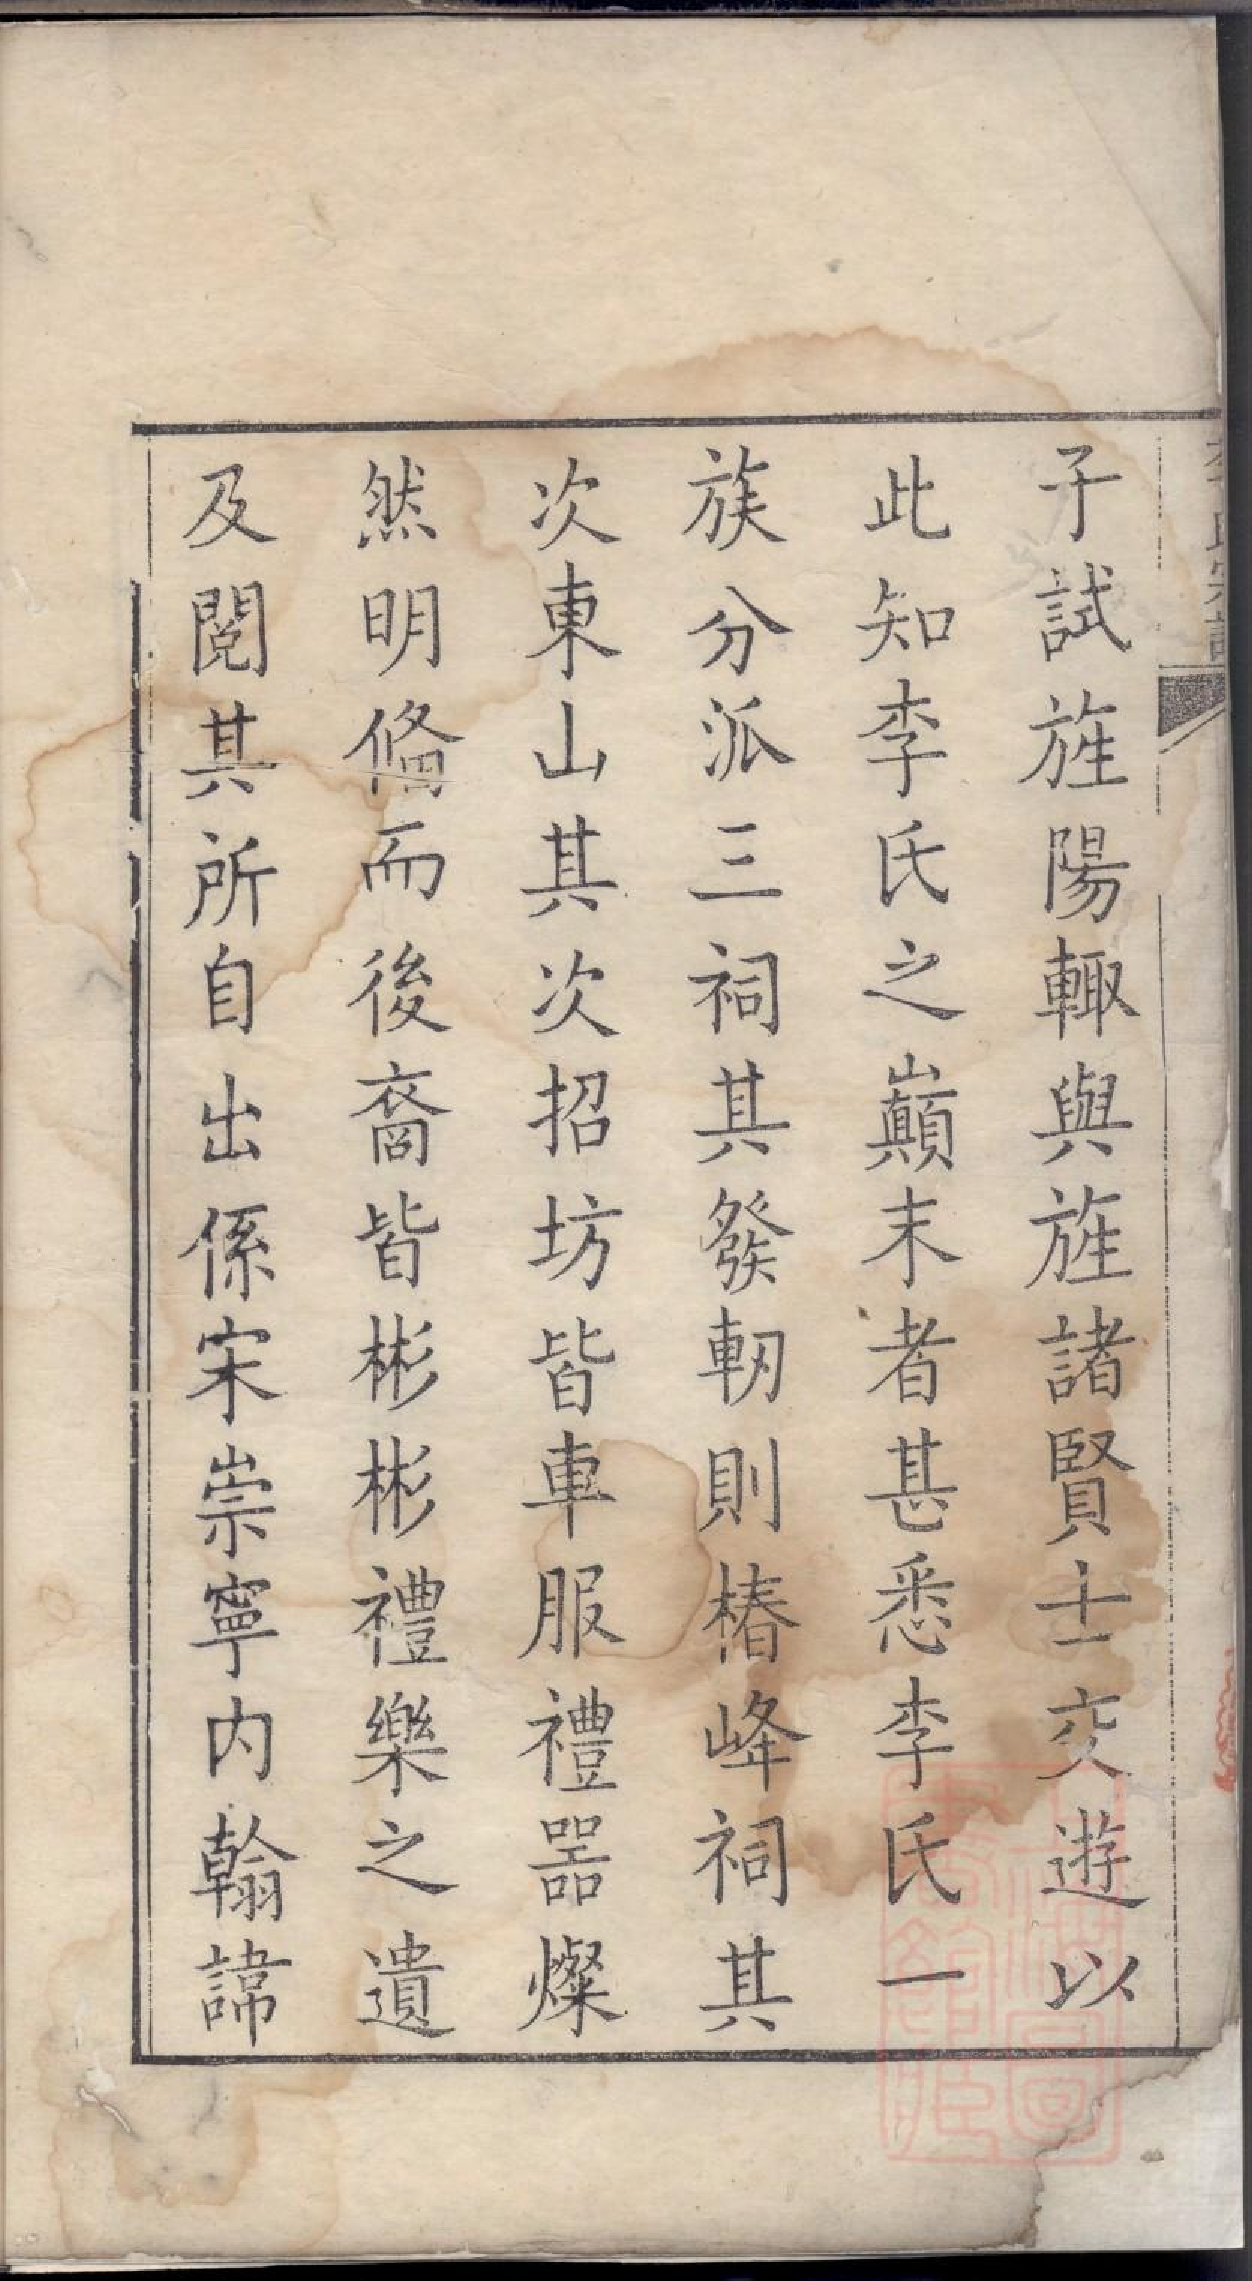 子試旌陽輙與旌諸賢士交遊以
此知李氏之巔末者甚悉李氏一
族分派三祠其發軔則椿峰祠其
次東山其次招坊皆車服禮器燦
然明備而後裔皆彬彬禮樂之遺
及閱其所自出係宋崇寧内翰諱